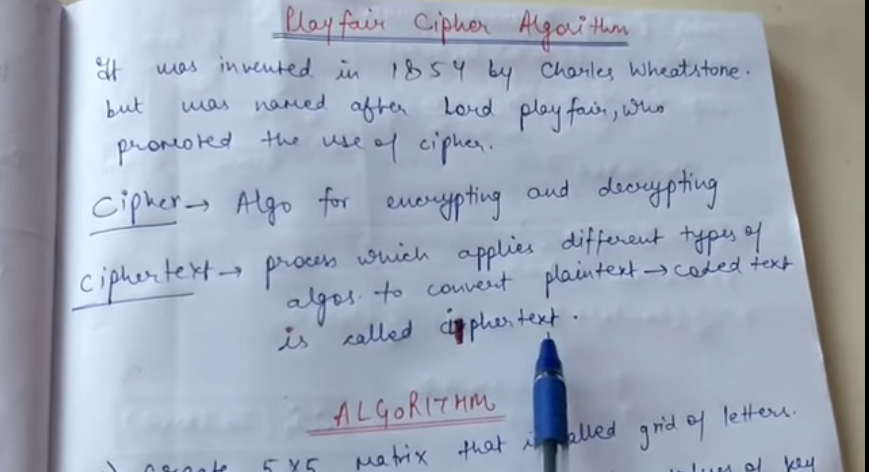 Playfair Cipher Algorithm
It was invented in 1854 by Charles Wheatstone.
but was named after Lord playfair, who
promoted the use of cipher.
Cipher → Algo for encrypting and decrypting
Ciphertext → process which applies different types of
algos. to convert plaintext → coded text
is called ciphertext.
ALGORITHM
5x5 Matrix that called grid of letters.
of key